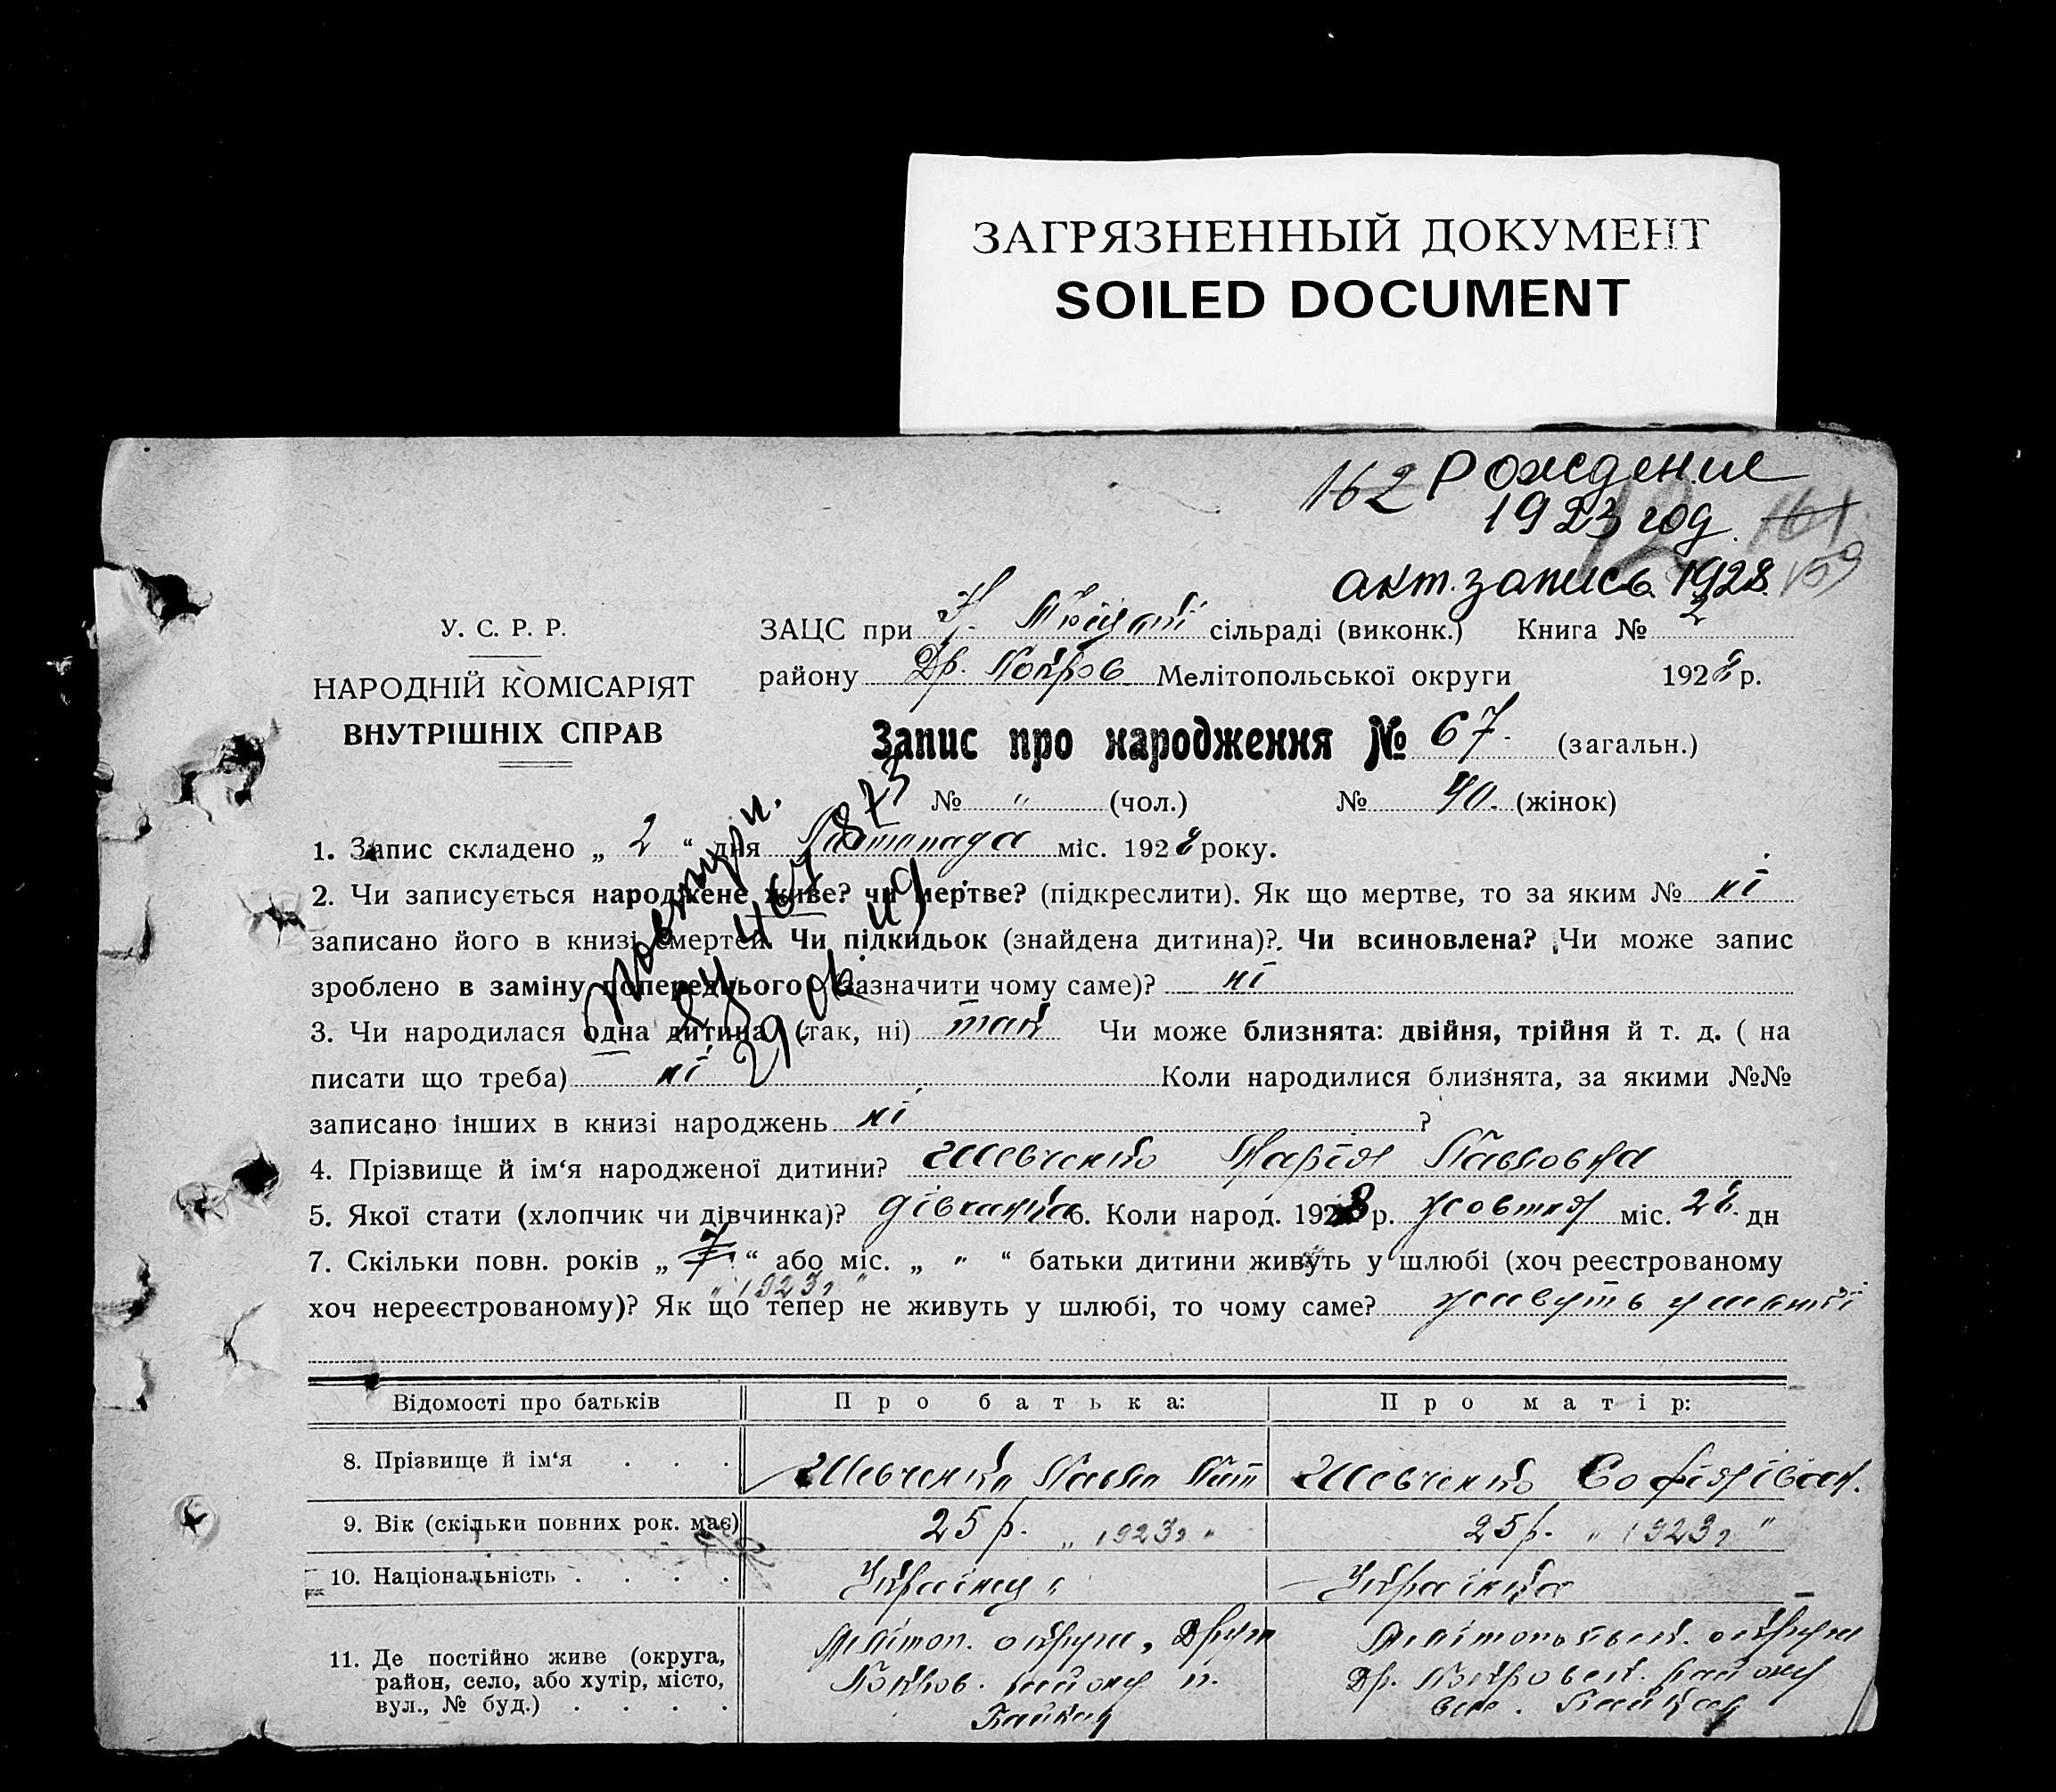 ЗАГРЯЗНЕННЫЙ ДОКУМЕНТ
SOILED DOCUMENT
162 Рождение
1923 год. 161
акт. запись 1928. 159
У. С. Р. Р.
НАРОДНІЙ КОМІСАРІЯТ
ВНУТРІШНІХ СПРАВ
ЗАЦС при сільраді (виконк.) Книга № 2
району Др. Покров Мелітопольської округи 1928 р.
Запис про народження № 67. (загальн.)
№ " (чол.) № 40. (жінок)
1. Запис складено „ 2 “ дня Листопада міс. 1928 року.
2. Чи записується народжене живе? чи мертве? (підкреслити). Як що мертве, то за яким № ні
записано його в книзі смертей. Чи підкидьок (знайдена дитина)?. Чи всиновлена? Чи може запис
зроблено в заміну попереднього (зазначити чому саме)? ні
3. Чи народилася одна дитина (так, ні) так Чи може близнята: двійня, трійня й т. д. ( на
писати що треба) ні Коли народилися близнята, за якими №№
записано інших в книзі народжень ні ?
4. Прізвище й ім‘я народженої дитини? Шевченко Марія Павловна
5. Якої стати (хлопчик чи дівчинка)? дівчинка 6. Коли народ. 1923 р. жовтня міс. 28. дн
7. Скільки повн. років „ 7 “ або міс. „ " “ батьки дитини живуть у шлюбі (хоч реєстрованому
„ 1923 "
хоч нереєстрованому)? Як що тепер не живуть у шлюбі, то чому саме? живуть у шлюбі
Відомості про батьків Про батька: Про матір:
8. Прізвище й ім‘я . . . Шевченко Павло Шевченко Софія Іван.
9. Вік (скільки повних рок. має) 25 р. „ 1923 " 25 р. „ 1923 "
10. Національність . . . . Українец Українка
11. Де постійно живе (округа, Мелітоп. округи, Друго Мелітопольськ. округи
район, село, або хутір, місто, Покров. району Др. Покровськ. району
вул., № буд.) . . . .